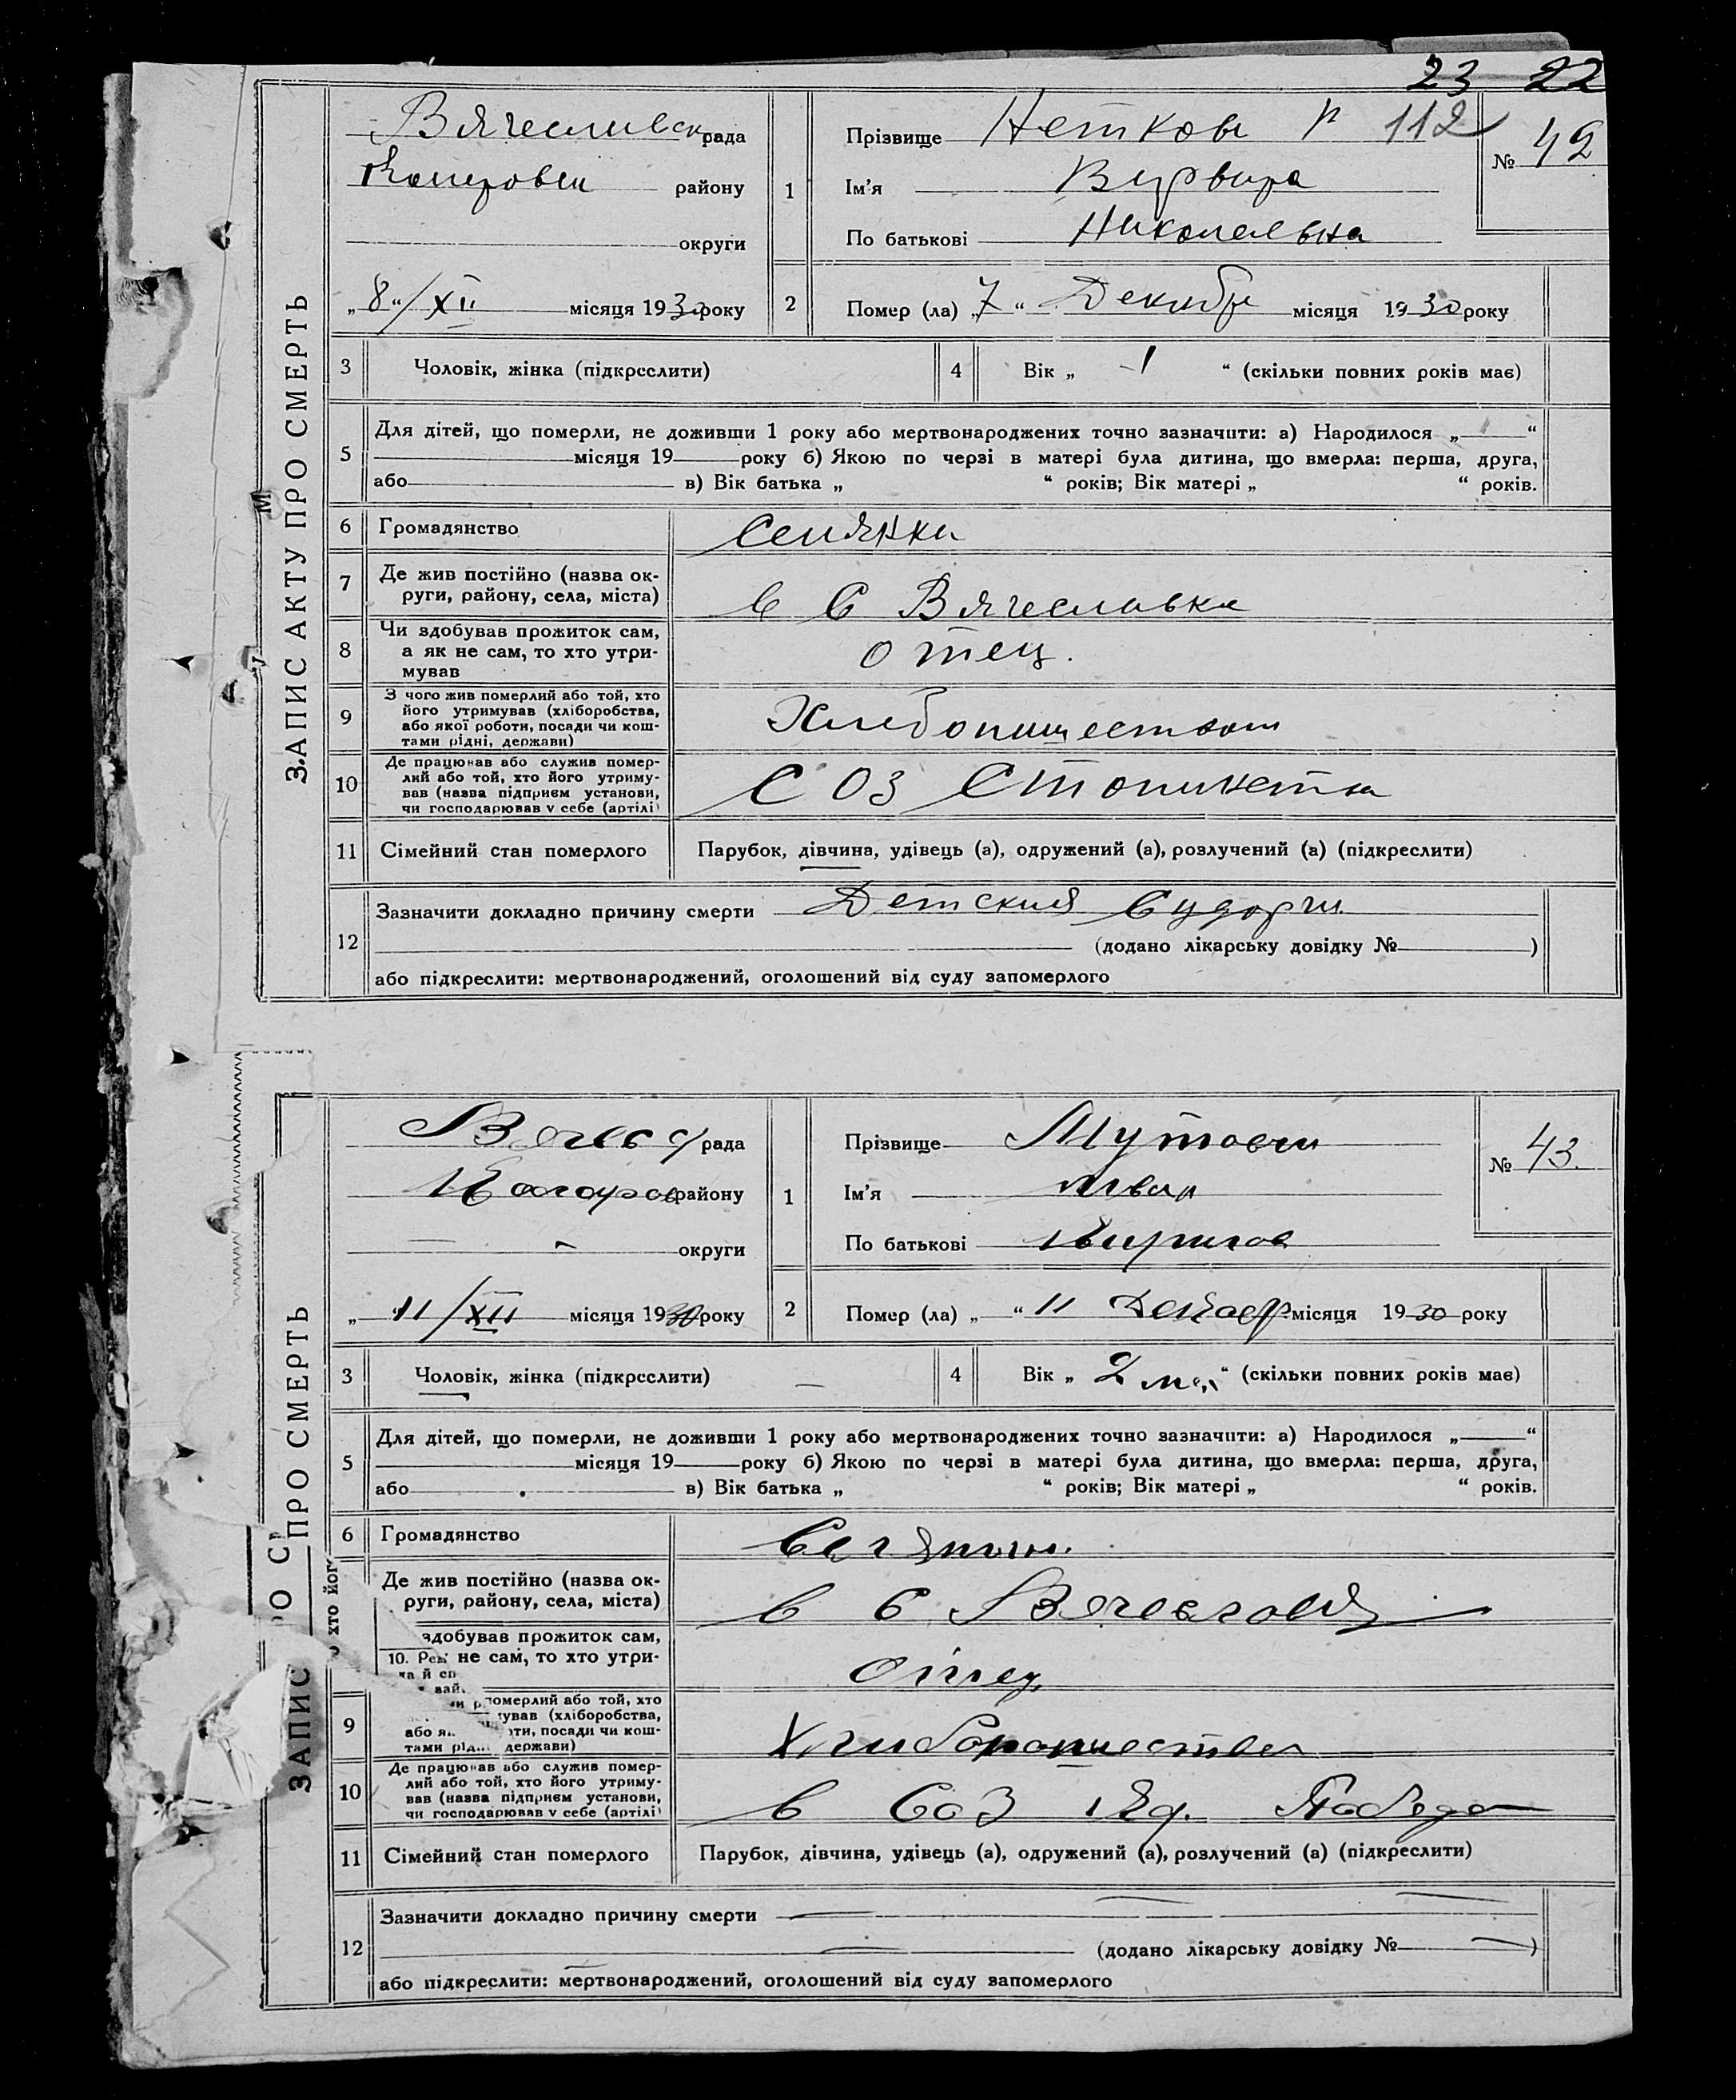 23 22
ЗАПИС АКТУ ПРО СМЕРТЬ
Вячеславск рада
району
округи
„8“/XII місяця 1930 року
1
Прізвище Неткова № 112
Ім’я Варвара
По батькові Николаевна
№ 42
2
Помер (ла) „7“ Декабр місяця 1930 року
3 Чоловік, жінка (підкреслити)
4 Вік „ 1 “ (скільки повних років має)
5 Для дітей, що померли, не доживши 1 року або мертвонароджених точно зазначити: а) Народилося „ “
місяця 19 року б) Якою по черзі в матері була дитина, що вмерла: перша, друга,
або в) Вік батька „ “ років; Вік матері „ “ років.
6 Громадянство Селянка
7 Де жив постійно (назва ок-
руги, району, села, міста) в С Вячеславка
8 Чи здобував прожиток сам,
а як не сам, то хто утри-
мував отец.
9 З чого жив померлий або той, хто
його утримував (хліборобства,
або якої роботи, посади чи кош-
тами рідні, держави) Хлебопашеством
10 Де працював або служив помер-
лий або той, хто його утриму-
вав (назва підприєм установи,
чи господарював у себе (артілі) СОЗ
11 Сімейний стан померлого Парубок, дівчина, удівець (а), одружений (а), розлучений (а) (підкреслити)
12 Зазначити докладно причину смерти Детския Судорги
(додано лікарську довідку № )
або підкреслити: мертвонароджений, оголошений від суду запомерлого
ПРО СМЕРТЬ
ЗАПИС
рада
району
округи
„ 11/XII місяця 1930 року
1
Прізвище
Ім’я Иван
По батькові Кирилов
№ 43.
2
Помер (ла) „ “ 11 Декабр місяця 1930 року
3 Чоловік, жінка (підкреслити)
4 Вік „ 2 мес “ (скільки повних років має)
5 Для дітей, що померли, не доживши 1 року або мертвонароджених точно зазначити: а) Народилося „ “
місяця 19 року б) Якою по черзі в матері була дитина, що вмерла: перша, друга,
або в) Вік батька „ “ років; Вік матері „ “ років.
6 Громадянство Селянин
Де жив постійно (назва ок-
руги, району, села, міста) в С
здобував прожиток сам,
10. не сам, то хто утри-
отец
9 померлий або той, хто
(хліборобства,
посади чи кош-
тами держави)
10 Де працював або служив помер-
лий або той, хто його утриму-
вав (назва підприєм установи,
чи господарював у себе (артілі) в Соз Победа
11 Сімейний стан померлого Парубок, дівчина, удівець (а), одружений (а), розлучений (а) (підкреслити)
12 Зазначити докладно причину смерти
(додано лікарську довідку № )
або підкреслити: мертвонароджений, оголошений від суду запомерлого